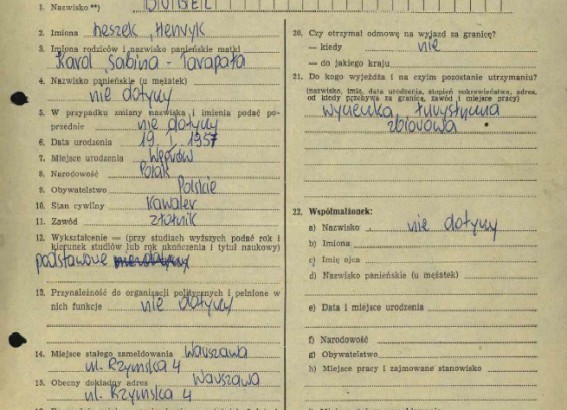 1. Nazwisko **) DUDEK
2. Imiona Leszek, Henryk
3. Imiona rodziców i nazwisko panieńskie matki
Karol, Sabina - Tarapata
4. Nazwisko panieńskie (u mężatek)
nie dotyczy
5. W przypadku zmiany nazwiska i imienia podać po-
przednie nie dotyczy
6. Data urodzenia 19. I. 1957
7. Miejsce urodzenia Węgrów
8. Narodowość Polak
9. Obywatelstwo Polskie
10. Stan cywilny Kawaler
11. Zawód złotnik
12. Wykształcenie — (przy studiach wyższych podać rok i
kierunek studiów lub rok ukończenia i tytuł naukowy)
podstawowe
13. Przynależność do organizacji politycznych i pełnione w
nich funkcje nie dotyczy
14. Miejsce stałego zameldowania Warszawa
ul. Rzymska 4
15. Obecny dokładny adres Warszawa
ul. Rzymska 4
20. Czy otrzymał odmowę na wyjazd za granicę?
— kiedy nie
— do jakiego kraju
21. Do kogo wyjeżdża i na czyim pozostanie utrzymaniu?
(nazwisko, imię, data urodzenia, stopień pokrewieństwa, adres,
od kiedy przebywa za granicą, zawód i miejsce pracy)
wycieczka turystyczna
zbiorowa
22. Współmałżonek:
a) Nazwisko nie dotyczy
b) Imiona
c) Imię ojca
d) Nazwisko panieńskie (u mężatek)
e) Data i miejsce urodzenia
f) Narodowość
g) Obywatelstwo
h) Miejsce pracy i zajmowane stanowisko